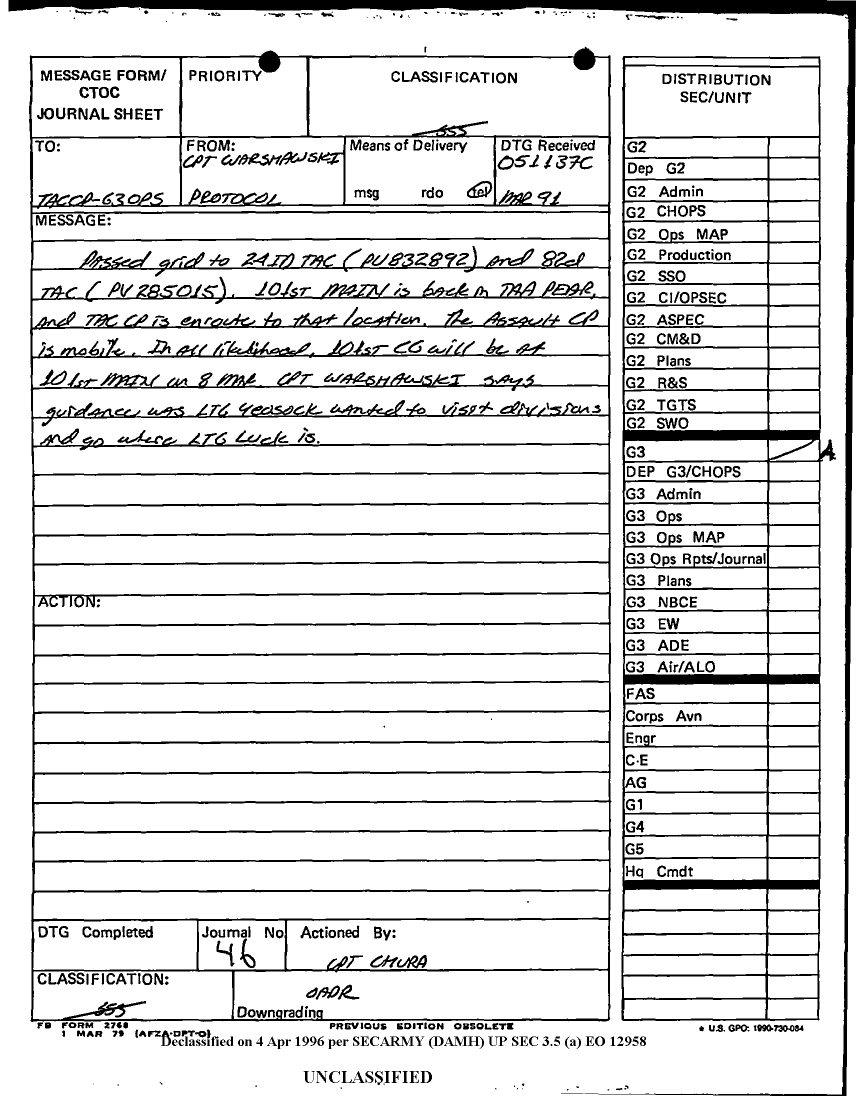 MESSAGE FORM/
CTOC
JOURNAL SHEET
PRIORITY
CLASSIFICATION
TO:
TACCP-G3OPS
FROM:
CPT WARSHAWSKI
PROTOCOL
Means of Delivery
msg rdo tel
DTG Received
051137C
MAR 91
MESSAGE:
Passed grid to 24ID TAC (PU832892) and 82d
TAC (PV285015). 101ST MAIN is back in TAA PEAR,
and TAC CP is enroute to that location. The Assault CP
is mobile. In all likelihood, 101ST CG will be at
101ST MAIN on 8 MAR. CPT WARSHAWSKI says
guidance was LTG Yeosock wanted to visit divisions
and go where LTG Luck is.
ACTION:
DTG Completed
Journal No
46
Actioned By:
CPT CHURA
CLASSIFICATION:
OADR
Downgrading
FB FORM 2768
1 MAR 79 (AFZA-DPT-O)
PREVIOUS EDITION OBSOLETE
DISTRIBUTION
SEC/UNIT
G2
Dep G2
G2 Admin
G2 CHOPS
G2 Ops MAP
G2 Production
G2 SSO
G2 CI/OPSEC
G2 ASPEC
G2 CM&D
G2 Plans
G2 R&S
G2 TGTS
G2 SWO
G3
DEP G3/CHOPS
G3 Admin
G3 Ops
G3 Ops MAP
G3 Ops Rpts/Journal
G3 Plans
G3 NBCE
G3 EW
G3 ADE
G3 Air/ALO
FAS
Corps Avn
Engr
C-E
AG
G1
G4
G5
Hq Cmdt
* U.S. GPO: 1990-730-084
Declassified on 4 Apr 1996 per SECARMY (DAMH) UP SEC 3.5 (a) EO 12958
UNCLASSIFIED